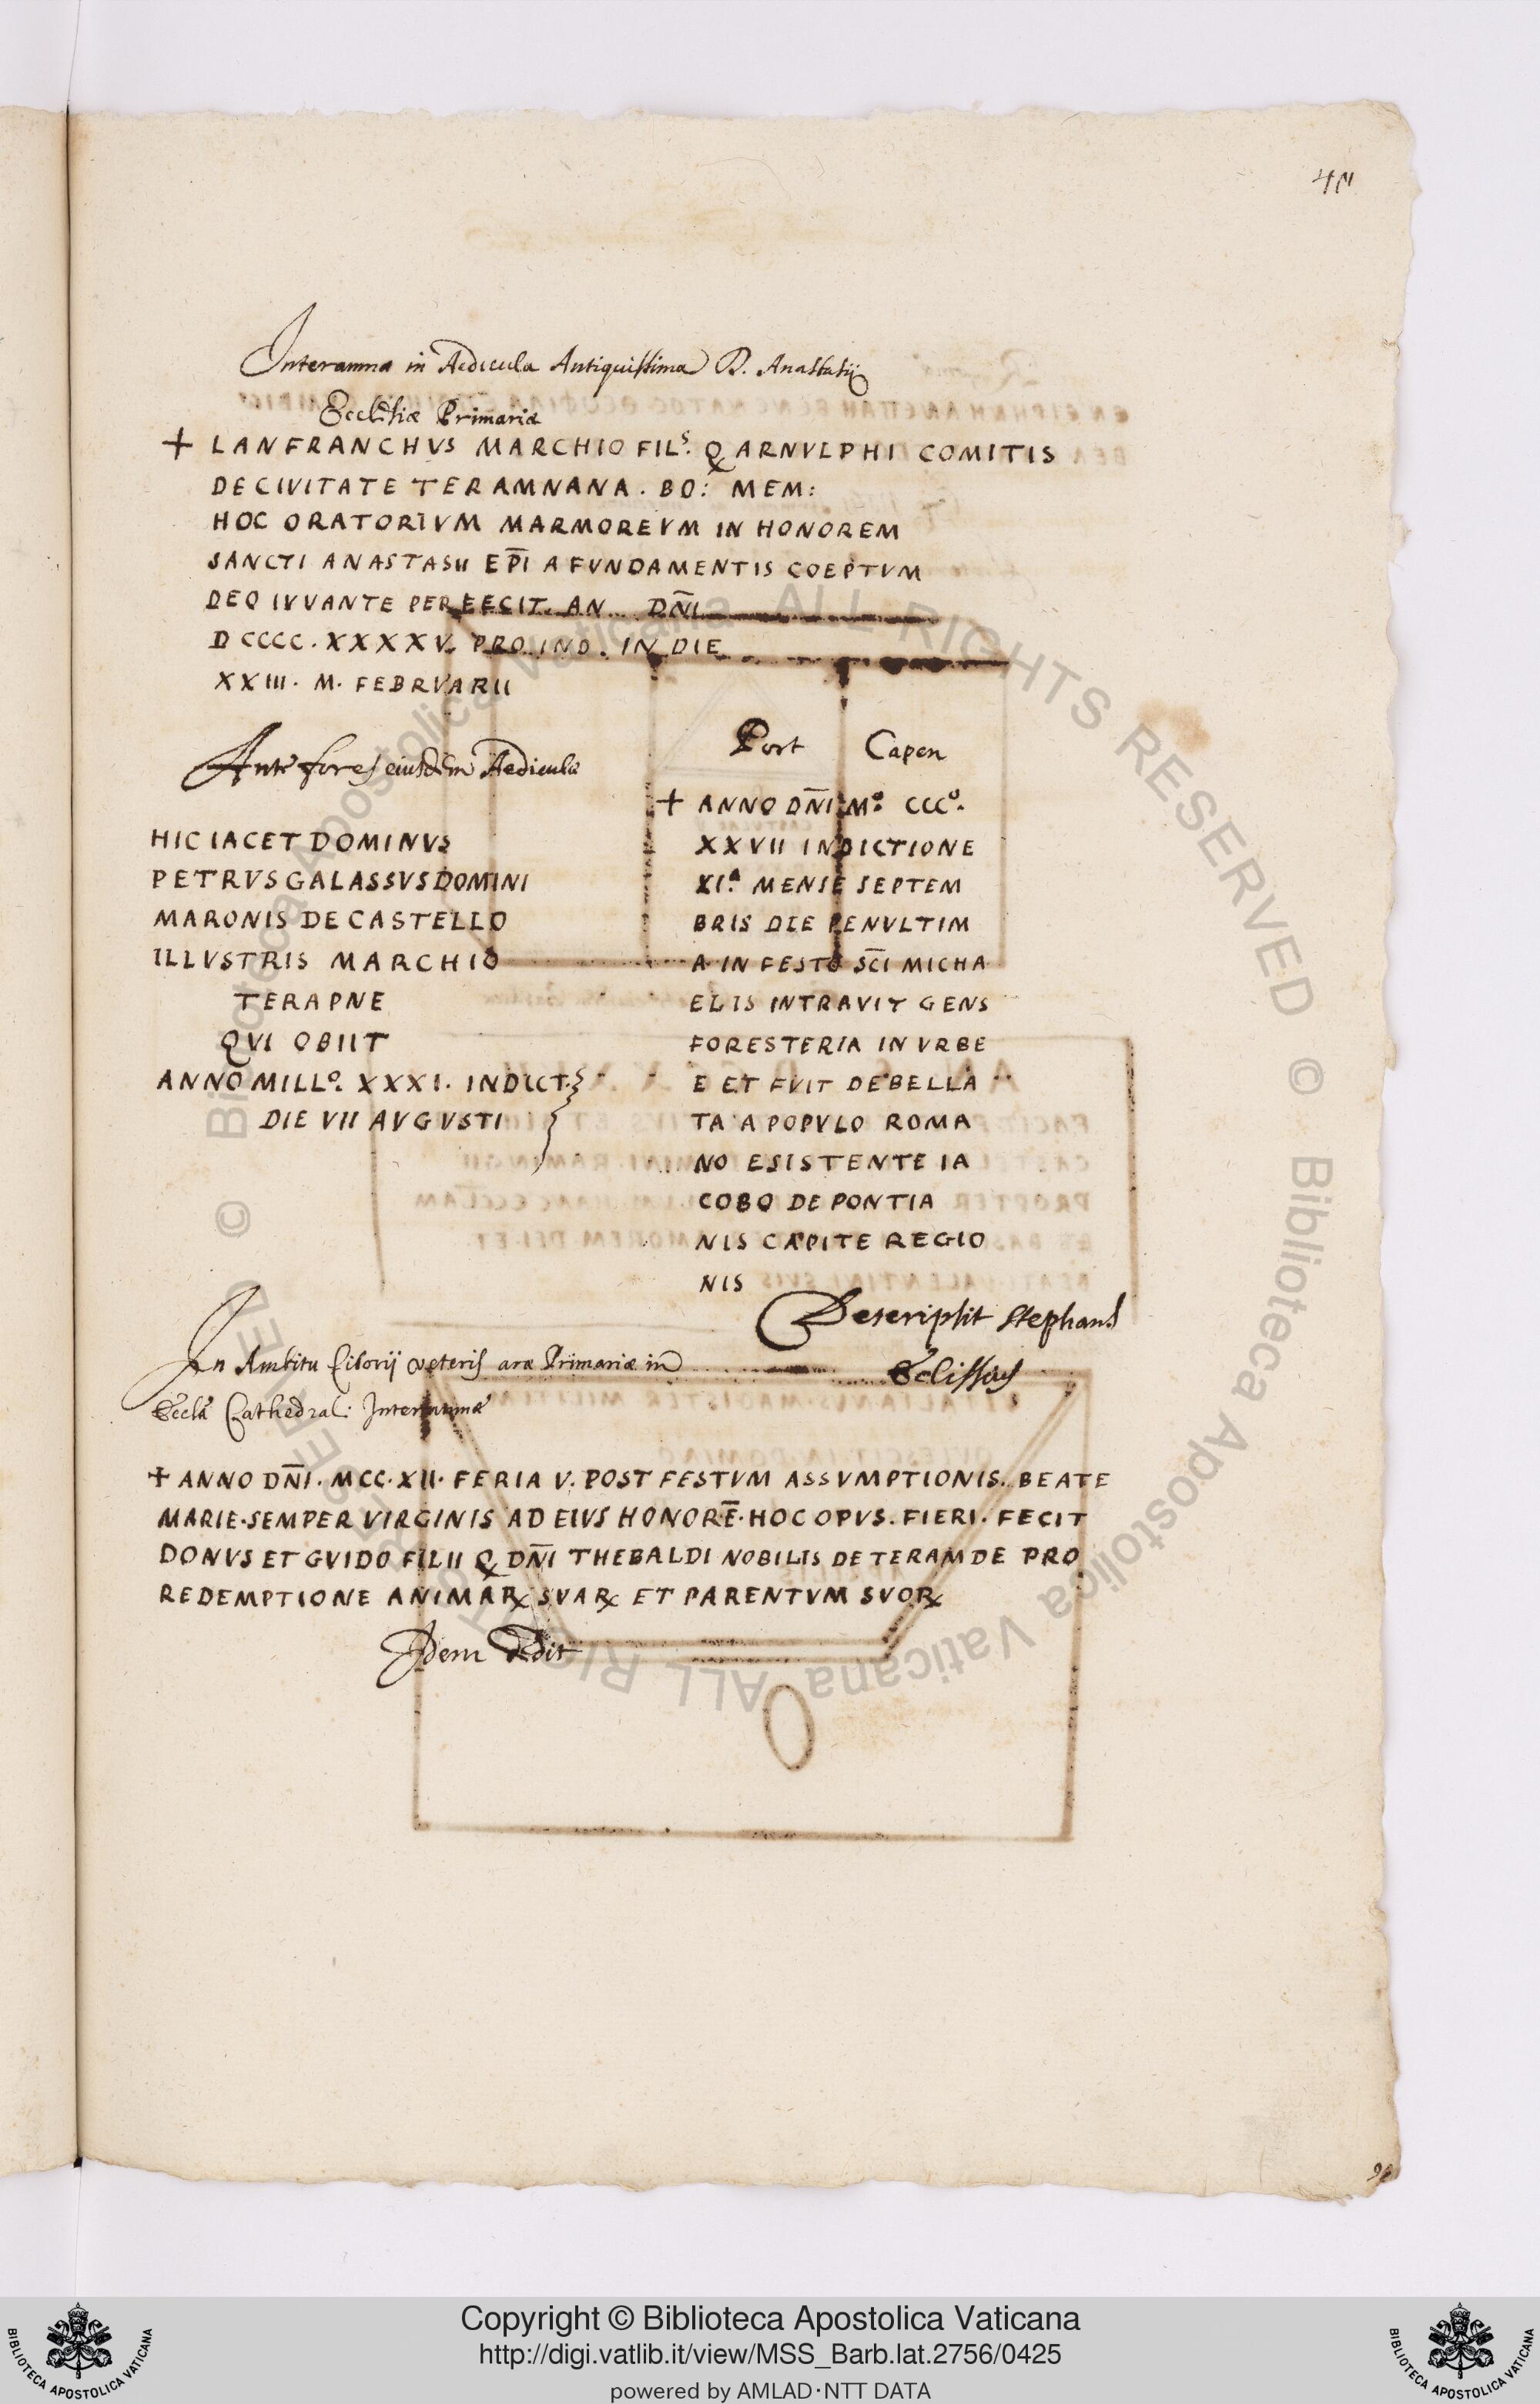 411
Interamna in Aedicula Antiquissima D. Anastasij
Ecclesiæ Primariæ
+ LANFRANCHVS MARCHIO FILˢ. Q ARNVLPHI COMITIS
DE CIVITATE TERAMNANA . BO: MEM:
HOC ORATORIVM MARMOREVM IN HONOREM
SANCTI ANASTASII EP̅I A FVNDAMENTIS COEPTVM
DEO IVVANTE PERFECIT. AN. DN̅I
D CCCC . XXXXV. PRO IND. IN DIE
XXIII. M. FEBRVARII
Ante fores eiusdem Aediculæ
HIC IACET DOMINVS
PETRVS GALASSVS DOMINI
MARONIS DE CASTELLO
ILLVSTRIS MARCHIO
TERAPNE
QVI OBIIT
ANNO MILLº. XXXI. INDICT.
DIE VII AVGVSTI
Port Capen
+ ANNO DN̅I Mº. CCCº.
XXVII INDICTIONE
XI.ᴬ MENSE SEPTEM
BRIS DIE PENVLTIM
A IN FESTO SC̅I MICHA
ELIS INTRAVIT GENS
FORESTERIA IN VRBE
E ET FVIT DEBELLA
TA A POPVLO ROMA
NO ESISTENTE IA
COBO DE PONTIA
NIS CAPITE REGIO
NIS
Descripsit Stephanus
In Ambitu Ciborij veteris aræ Primariæ in
Eccla Cathedral: Interamnæ
+ ANNO DN̅I . MCC. XII. FERIA V. POST FESTVM ASSVMPTIONIS. BEATE
MARIE. SEMPER VIRGINIS AD EIVS HONORE̅. HOC OPVS. FIERI. FECIT
DONVS ET GVIDO FILII Q DN̅I THEBALDI NOBILIS DE TERAMDE PRO
REDEMPTIONE ANIMAℝ SVAℝ ET PARENTVM SVOℝ
Idem Vidit
Copyright © Biblioteca Apostolica Vaticana
http://digi.vatlib.it/view/MSS_Barb.lat.2756/0425
powered by AMLAD·NTT DATA
BIBLIOTECA APOSTOLICA VATICANA
BIBLIOTECA APOSTOLICA VATICANA
© Biblioteca Apostolica Vaticana ALL RIGHTS RESERVED
© Biblioteca Apostolica Vaticana ALL RIGHTS RESERVED